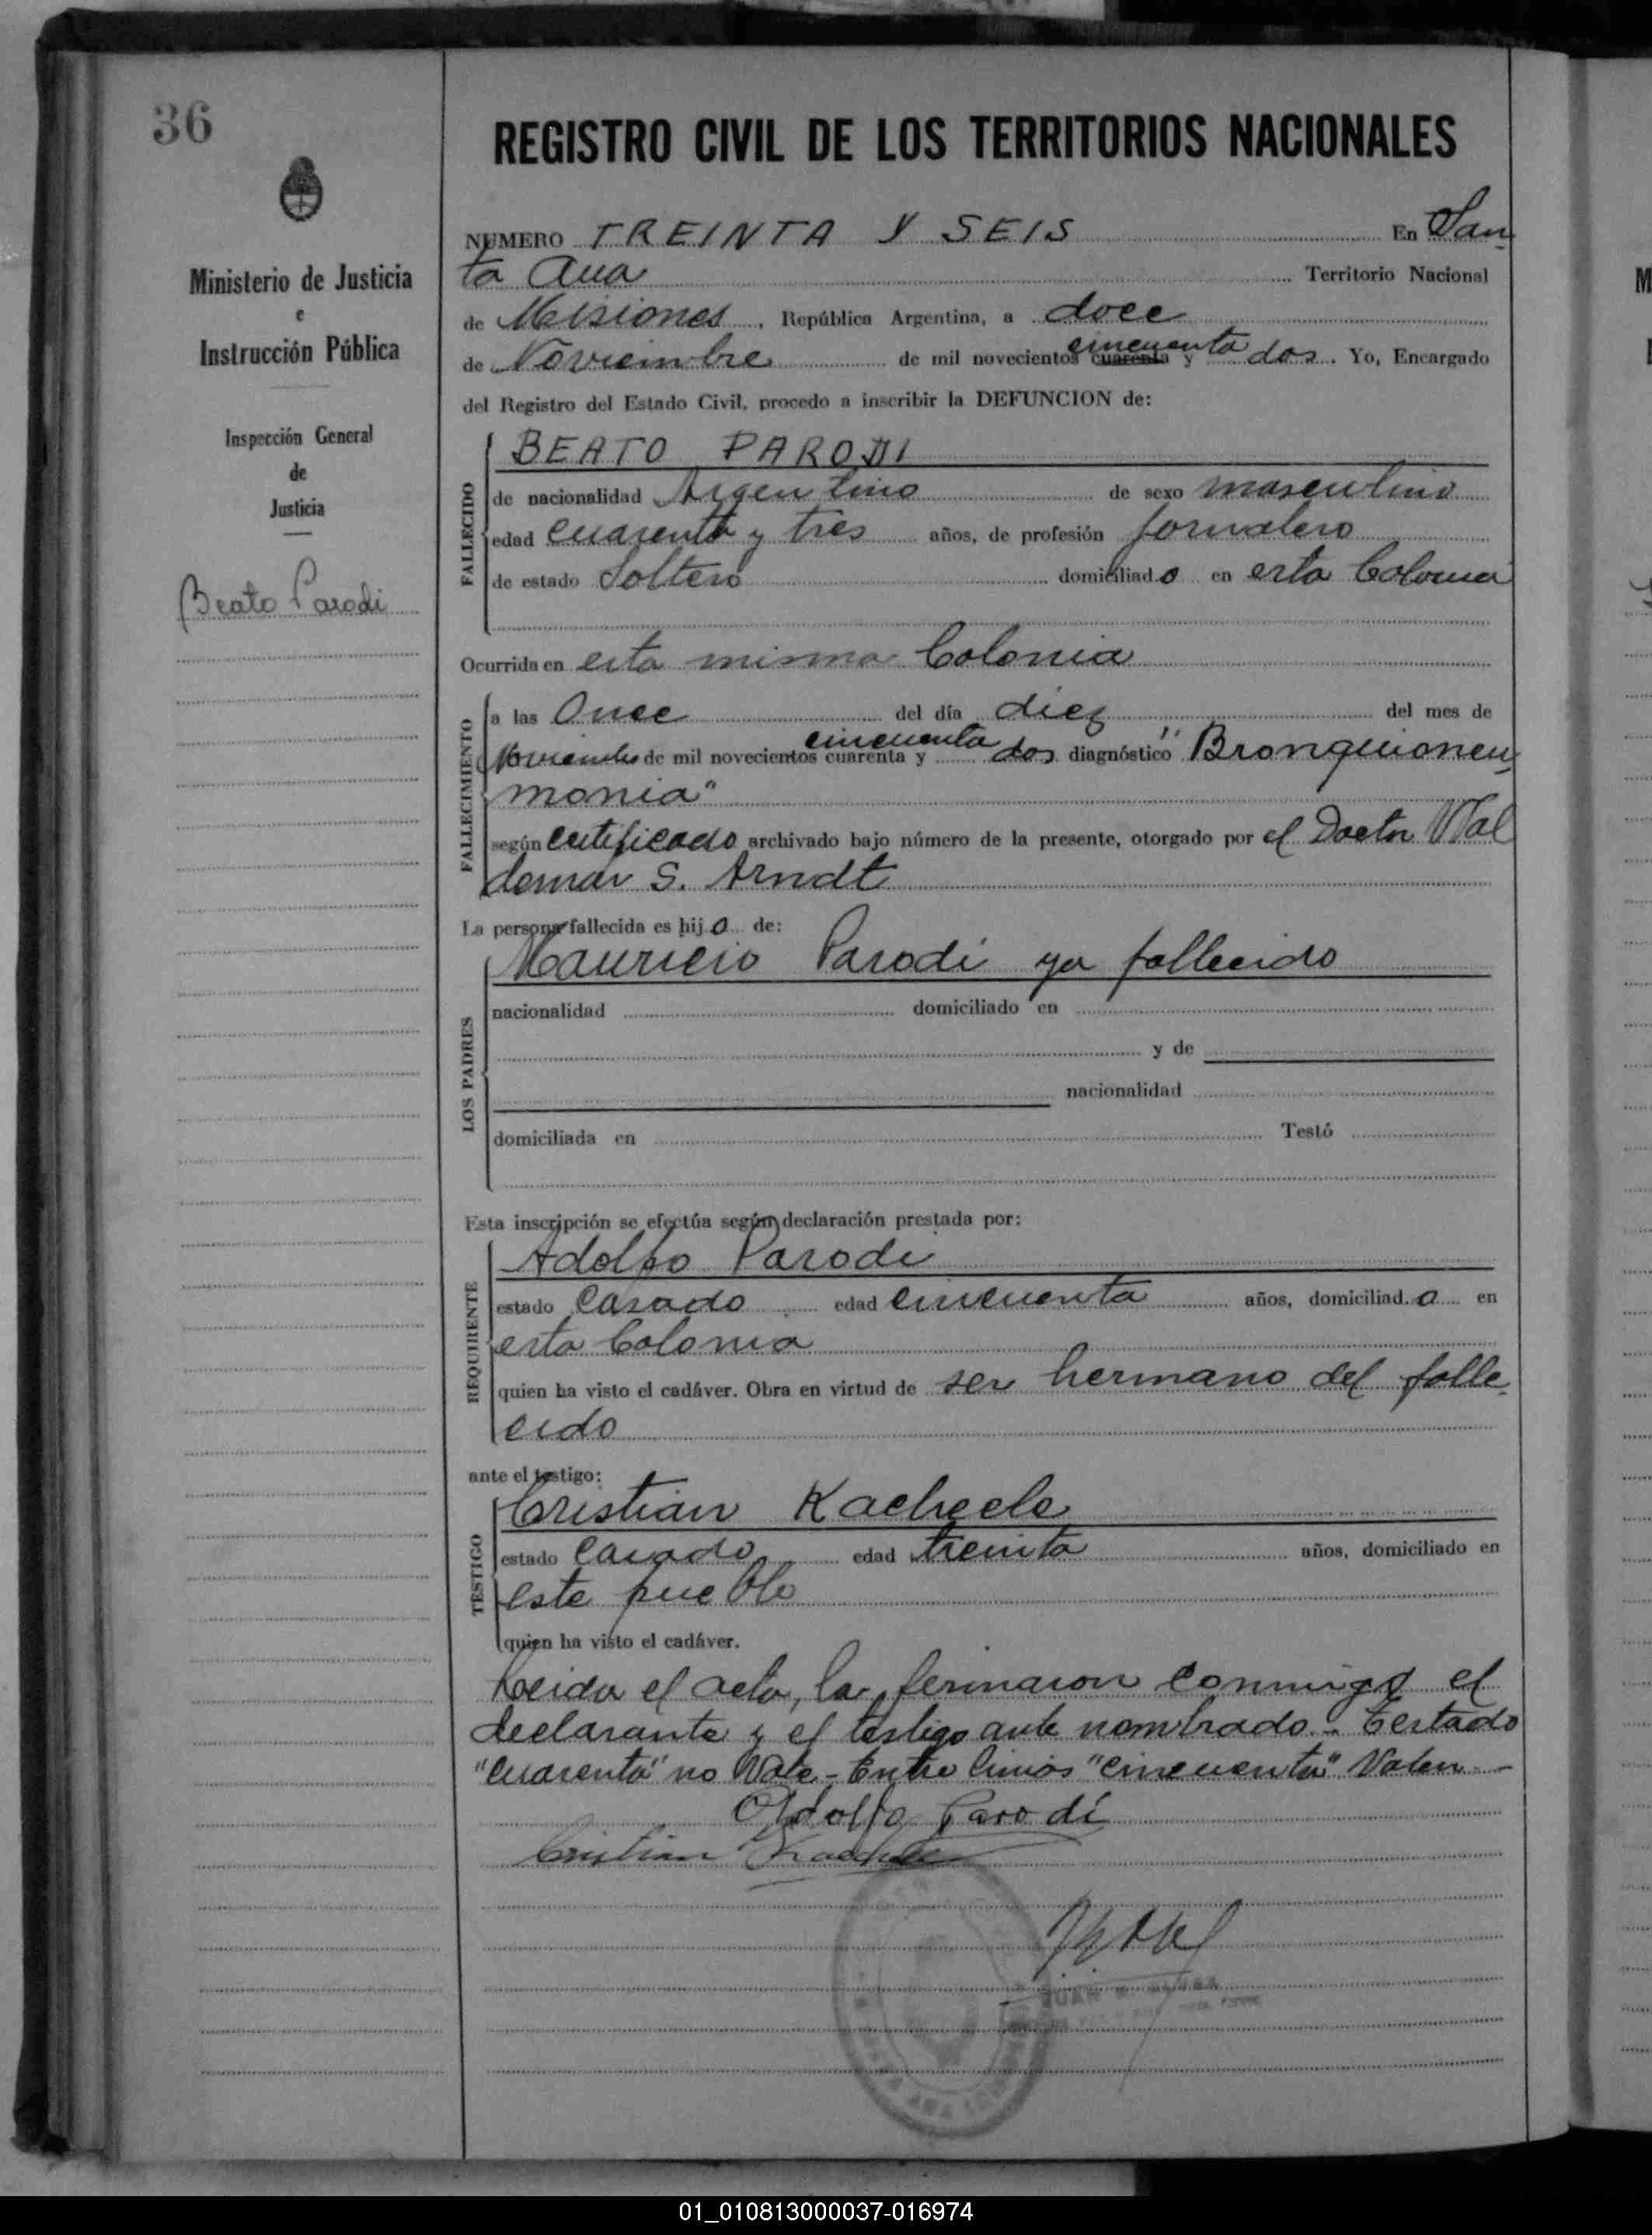 36
REGISTRO CIVIL DE LOS TERRITORIOS NACIONALES
Ministerio de Justicia
e
Instrucción Pública
Inspección General
de
Justicia
Beato Parodi
NUMERO TREINTA Y SEIS En San
ta Ana Territorio Nacional
de Misiones, República Argentina, a doce
de Noviembre de mil novecientos cuarenta y cincuenta dos. Yo, Encargado
del Registro del Estado Civil, procedo a inscribir la DEFUNCION de:
FALLECIDO
BEATO PARODI
de nacionalidad Argentino de sexo masculino
edad cuarenta y tres años, de profesión jornalero
de estado Soltero domiciliado en esta Colonia
Ocurrida en esta misma Colonia
FALLECIMIENTO
a las Once del día diez del mes de
Noviembre de mil novecientos cuarenta y cincuenta dos diagnóstico "Bronquioneu
monia"
según certificado archivado bajo número de la presente, otorgado por el Doctor Wal
demar S. Arndt
La persona fallecida es hijo de:
LOS PADRES
Mauricio Parodi ya fallecido
nacionalidad domiciliado en
y de
nacionalidad
domiciliada en Testó
Esta inscripción se efectúa según declaración prestada por:
REQUIRENTE
Adolfo Parodi
estado Casado edad cincuenta años, domiciliado en
esta Colonia
quien ha visto el cadáver. Obra en virtud de ser hermano del falle
cido
ante el testigo:
TESTIGO
Cristian Kacheele
estado Casado edad treinta años, domiciliado en
este pueblo
quien ha visto el cadáver.
Leida el acta, la firmaron conmigo el
declarante y el testigo ante nombrado - Testado
"cuarenta" no Vale - Entre linias "cincuenta" Valen -
Adolfo Parodi
Cristian
JUAN
01_010813000037-016974